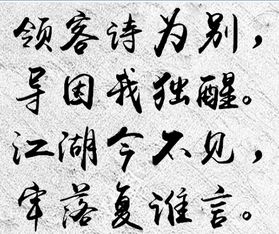 领客诗为别，
导因我独醒。
江湖今不见，
牢落复谁言。